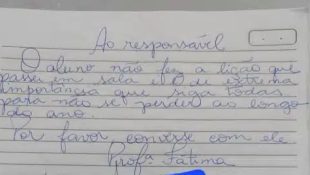 Ao responsável
O aluno não fez a lição que
passei em sala e é de extrema
importância que siga todas
para não se perder ao longo
do ano.
Por favor converse com ele
Profs Fátima